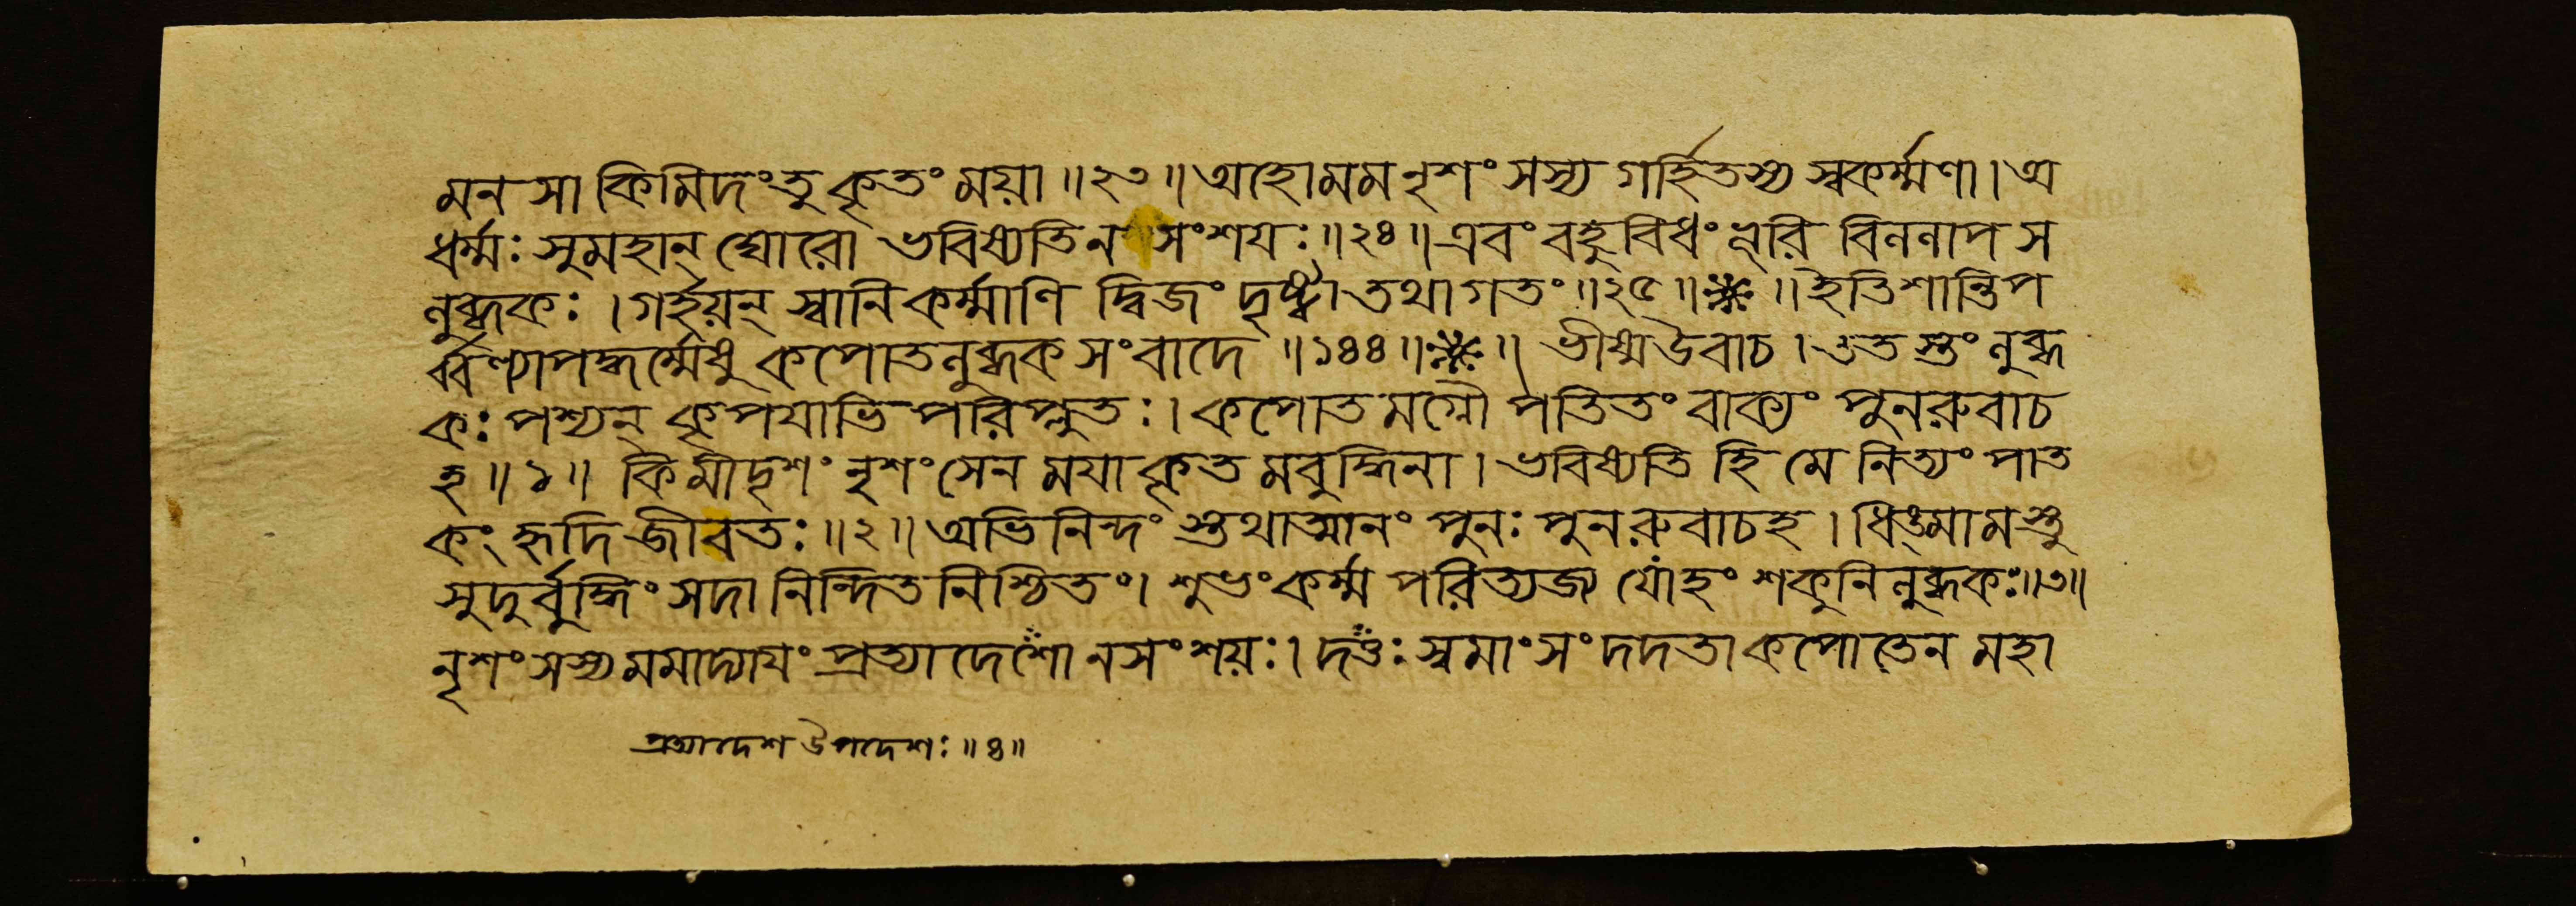 মনসা কিমিদং তু কৃতং ময়া ॥ ২৩ ॥ অহো মম নৃশংসস্য গর্হিতস্য স্বকর্ম্মণা । অ
ধর্ম্মঃ সুমহান্ ঘোরো ভবিষ্যতি ন সংশযঃ ॥ ২৪ ॥ এবং বহুবিধং ভূরি বিললাপ স
লুব্ধকঃ । গর্হয়ন্ স্বানি কর্ম্মাণি দ্বিজং দৃষ্ট্বা তথাগতং ॥ ২৫ ॥ ※ ॥ ইতি শান্তিপ
র্ব্বণ্যাপদ্ধর্ম্মেষু কপোতলুব্ধকসংবাদে ॥ ১৪৪ ॥ ※ ॥ ভীষ্ম উবাচ । ততস্তং লুব্ধ
কঃ পশ্যন্ কৃপযাভিপরিপ্লুতঃ । কপোতমগ্নৌ পতিতং বাক্যং পুনরুবাচ
হ ॥ ১ ॥ কিমীদৃশং নৃশংসেন মযা কৃতমবুদ্ধিনা । ভবিষ্যতি হি মে নিত্যং পাত
কং হৃদি জীবতঃ ॥ ২ ॥ অভিনিন্দংস্তথাত্মানং পুনঃ পুনরুবাচ হ । ধিঙ্মামস্তু
সুদুর্বুদ্ধিং সদা নিন্দিতনিশ্চিতং । শুভং কর্ম্ম পরিত্যজ্য যোহং শকুনিলুব্ধকঃ ॥ ৩ ॥
নৃশংসস্য মমাদ্যাযং প্রত্যাদেশো ন সংশয়ঃ । দত্তঃ স্বমাংসং দদতা কপোতেন মহা
প্রত্যাদেশ উপদেশঃ ॥ ৪ ॥